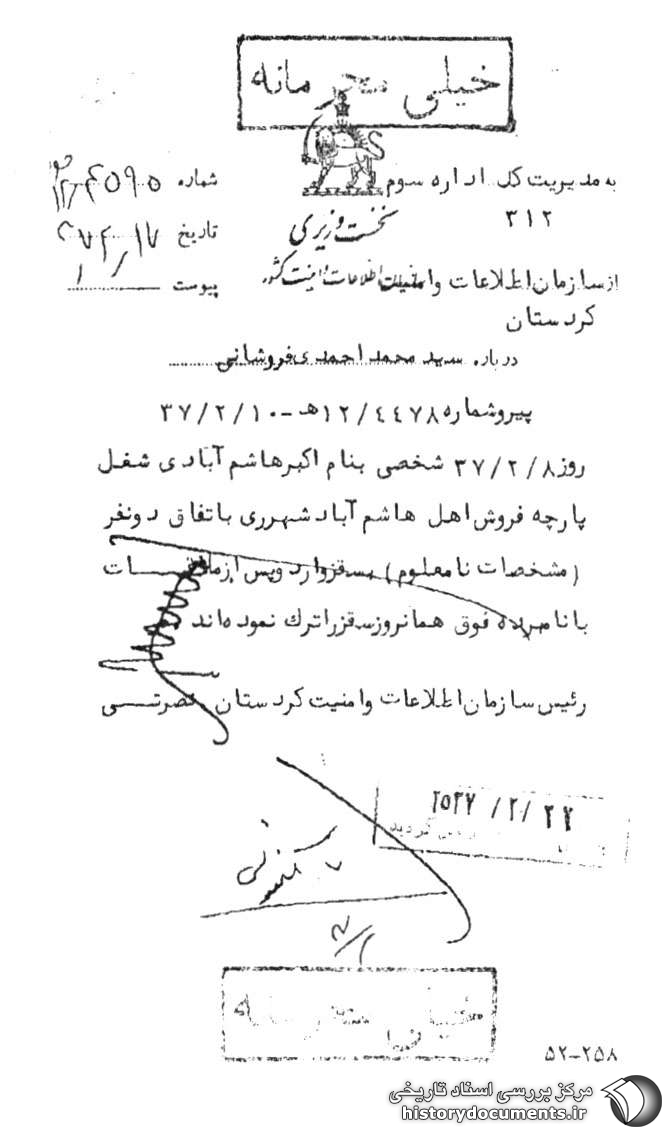 خیلی محرمانه
به مدیریت کل اداره سوم
۳۱۲
نخست وزیری
سازمان اطلاعات و امنیت کشور
شماره
تاریخ
پیوست
از سازمان اطلاعات و امنیت
کردستان
درباره سید محمد احمدی فروشانی
پیرو شماره ۱۲/٤٤۷۸ هـ - ۳۷/۲/۱۰
روز ۳۷/۲/۸ شخصی بنام اکبر هاشم آبادی شغل
پارچه فروش اهل هاشم آباد شهرری باتفاق دو نفر
(مشخصات نامعلوم) بسقز وارد و پس از ملاقات
با نامبرده فوق همانروز سقز را ترک نموده اند
رئیس سازمان اطلاعات و امنیت کردستان
۲۵۳۷/۲/۲۷
گردید
خیلی محرمانه
۵۲-۲۵۸
مرکز بررسی اسناد تاریخی
historydocuments.ir